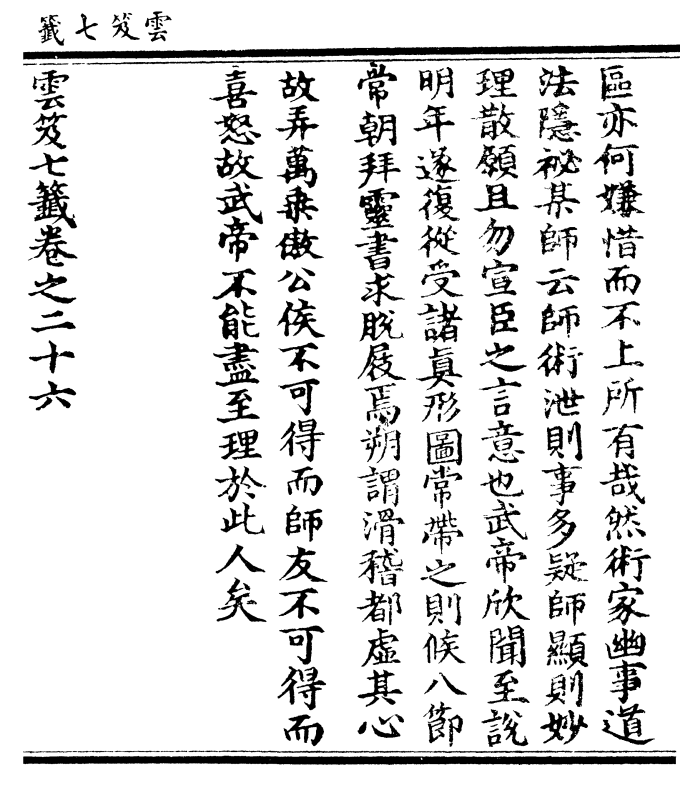 雲笈七籤
區亦何嫌惜而不上所有哉然術家幽事道
法隱祕某師云師術泄則事多疑師顯則妙
理散願且勿宣臣之言意也武帝欣聞至說
明年遂復從受諸眞形圖常帶之則候八節
常朝拜靈書求脫屐焉朔謂滑稽都虛其心
故弄萬乘傲公侯不可得而師友不可得而
喜怒故武帝不能盡至理於此人矣
雲笈七籤卷之二十六